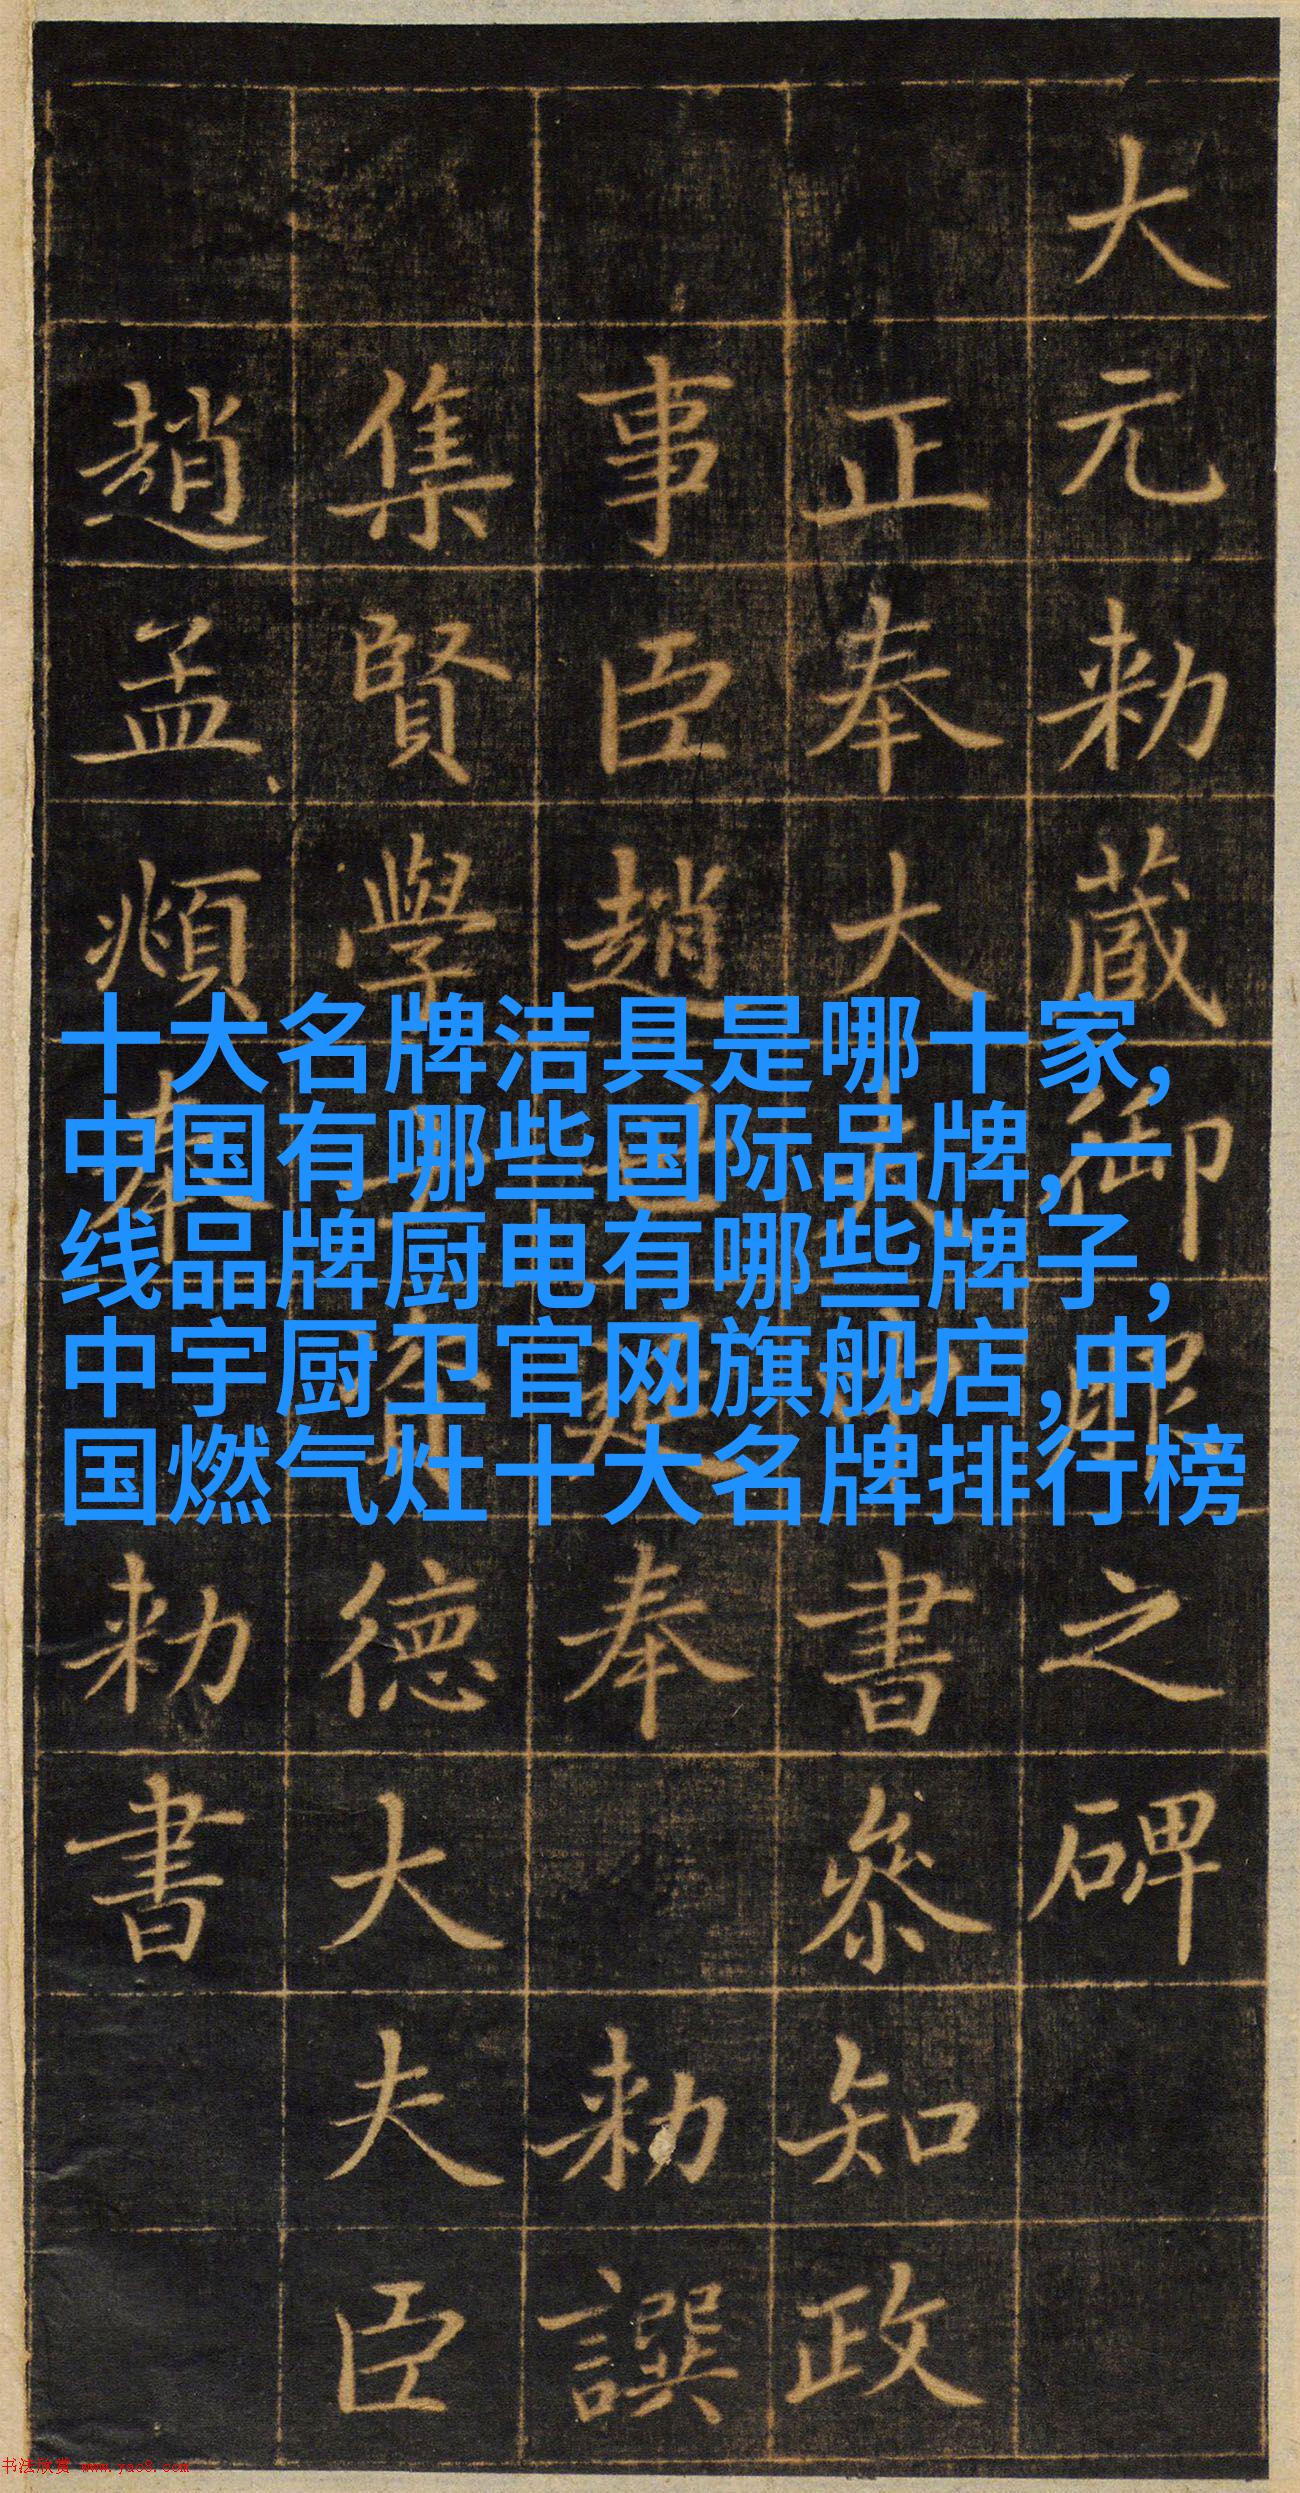 大元勅藏御服之碑
正奉大夫中書參知政
事臣趙世延奉勅譔
集賢學士資德大夫臣
趙孟頫奉勅書
十大名牌洁具是哪十家,
中国有哪些国际品牌,一
线品牌厨电有哪些牌子,
中宇厨卫官网旗舰店,中
国燃气灶十大名牌排行榜
书法欣赏 www.yac8.com